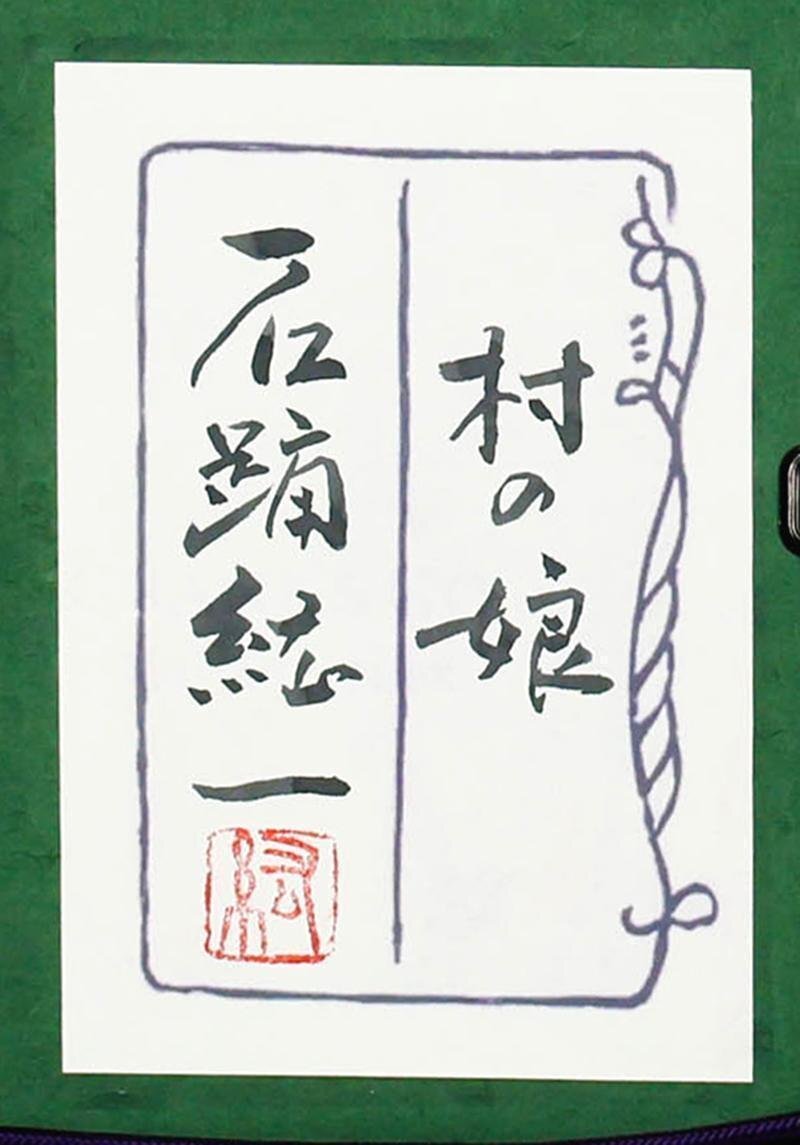 村の娘
石踊紘一
紘